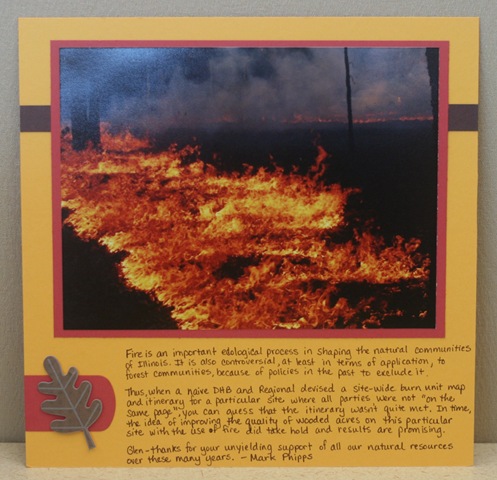 Fire is an important ecological process in shaping the natural communities
of Illinois. It is also controversial, at least in terms of application, to
forest communities, because of policies in the past to exclude it.
Thus, when a naive DHB and Regional devised a site-wide burn unit map
and itinerary for a particular site where all parties were not "on the
same page", you can guess that the itinerary wasn't quite met. In time,
the idea of improving the quality of wooded acres on this particular
site with the use of fire did take hold and results are promising.
Glen-thanks for your unyielding support of all our natural resources
over these many years. - Mark Phipps